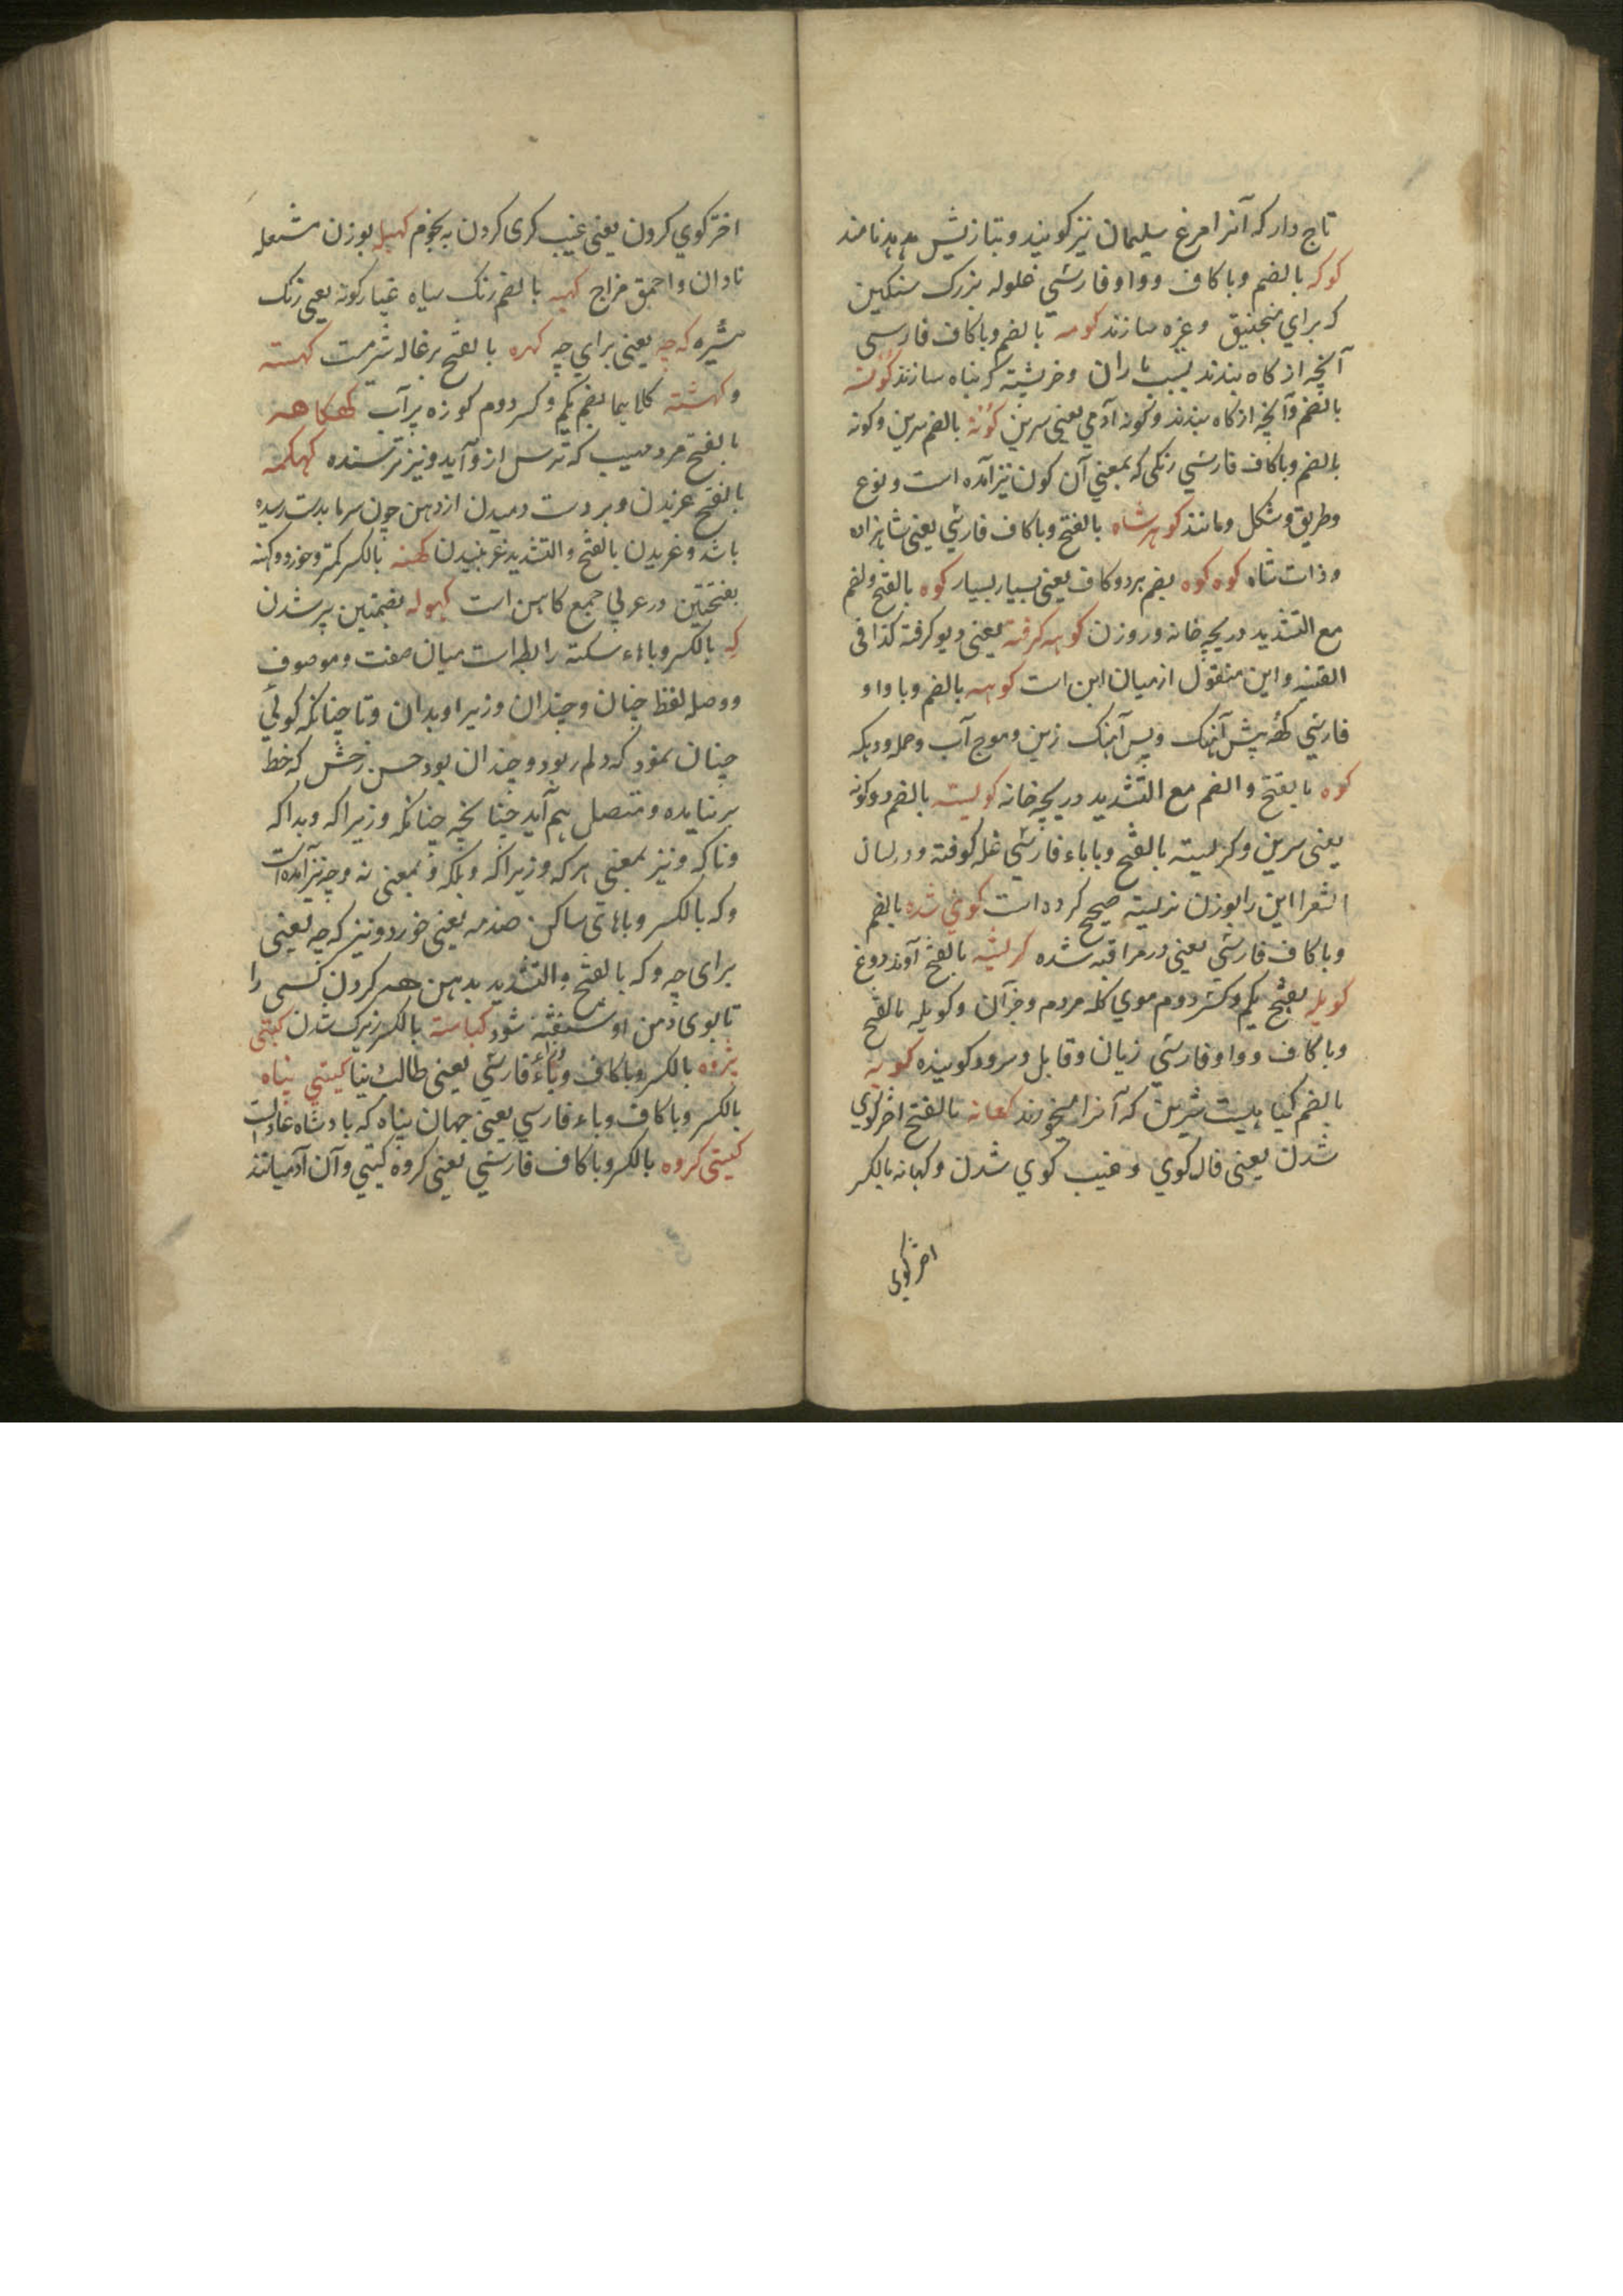 تاج دار که آنرا مرغ سلیمان نیز کویند و بتازیش هدهد نامند
کوکه بالضم و با کاف و واو فارسی غلوله بزرک سنکین
که برای منجنیق و غیره سازند کومه بالضم و با کاف فارسی
آنچه از کاه بندند بسبب باران و خرپشته که پناه سازند کونه
بالضم و آنچه از کاه بندند و کونه آدمی یعنی سرین کونه بالضم سرین و کونه
بالضم و با کاف فارسی رنکی که بمعنی آن کون نیز آمده است و نوع
و طریق و شکل و مانند کوهرشاه بالفتح و با کاف فارسی یعنی شاهزاده
و ذات شاه کوه کوه بضم هردو کاف یعنی بسیار بسیار کوه بالفتح و لضم
مع التشدید دریچه خانه و روزن کوهه کرفته یعنی دیو کرفته کذا فی
القنیه و این منقول از میان ابن است کوهه بالضم و با واو
فارسی پیش آهنک و پس آهنک زین و موج آب و حمله و دیکه
کوه بالفتح و الضم مع التشدید دریچه خانه کولیسته بالضم دو کونه
یعنی سرین و کرلیسته بالفتح و با باء فارسی غله کوفته و در لسان
الشعرا این را بوزن نرلیسته صحیح کرده است کوی شده بالضم
و با کاف فارسی یعنی در مراقبه شده کرلیشه بالفتح آوند دوغ
کویله بفتح یکم و کسر دوم موی کله مردم و جز آن و کویله بالفتح
و با کاف و واو فارسی زیان و قابل و سرود کوینده کویه
بالضم کیاهیست شیرین که آنرا میخورند کهانه بالفتح اختر کوی
شدن یعنی فال کوی و غیب کوی شدن و کهانه بالکسر
اختر کوی
اختر کوی کردن یعنی غیب کری کردن به نجوم کهیله بوزن مشعله
نادان و احمق مزاج کهبه بالضم رنک سیاه غبار کونه یعنی رنک
تیره که چه یعنی برای چه کهره بالفتح بزغاله شیرمست کهسته
و کهشته کلاهما بضم یکم و کسر دوم کوزه پر آب کهکاهه
بالفتح مرد مهیب که ترس ازو آید و نیز ترسنده کهکمه
بالفتح غریدن و بر دست دمیدن از دهن چون سرما بدست رسیده
باشد و غریدن بالفتح و التشدید غرنبیدن کهنه بالکسر کمتر و خورد و کهنه
بفتحتین در عربی جمع کاهن است کهوله بضمتین پیر شدن
که بالکسر و باهاء سکته رابطه است میان صفت و موصوف
و وصله لفظ چنان و چندان و زیرا و بدان و تا چنانکه کوئی
چنان نمود که دلم ربود و چندان بود حسن رخش که خط
برنیایده و متصل هم آید چنانچه چنانکه و زیراکه و بداکه
و تاکه و نیز بمعنی هرکه و زیراکه و بلکه و بمعنی نه و چه نیز آمده است
و که بالکسر و با های ساکن ضد مه یعنی خورد و نیز که چه یعنی
برای چه و که بالفتح و التشدید بدهن هه کردن کسی را
تا بوی دهن او شنفته شود کیاسته بالکسر زیرک شدن کیتی
پژوه بالکسر و با کاف و باء و زاء فارسی یعنی طالب دنیا کیتی پناه
بالکسر و با کاف و باء فارسی یعنی جهان پناه که بادشاه عادلست
کیتی کروه بالکسر و با کاف فارسی یعنی کروه کیتی و آن آدمیانند